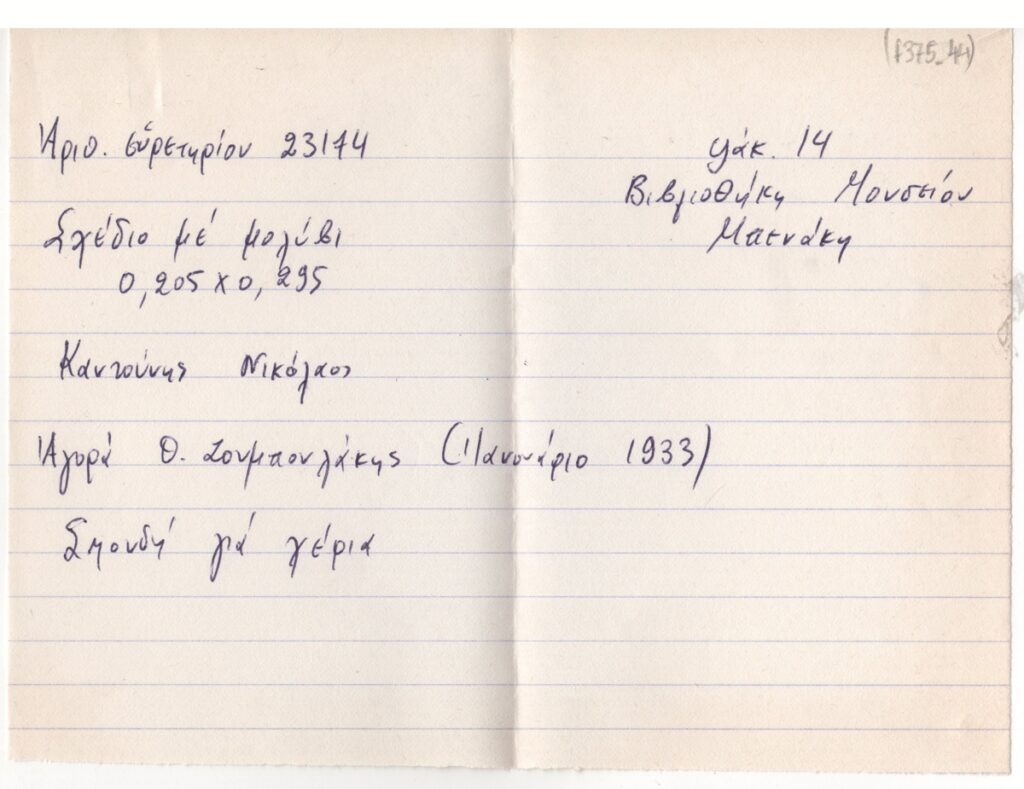 (1375_44)
Ἀριθ. εὑρετηρίου 23174
Σχέδιο μέ μολύβι
0,205 x 0,295
Καντούνης Νικόλαος
Ἀγορά Θ. Ζουμπουλάκης (Ἰανουάριο 1933)
Σπουδή γιά χέρια
φάκ. 14
Βιβλιοθήκη Μουσείου
Μπενάκη